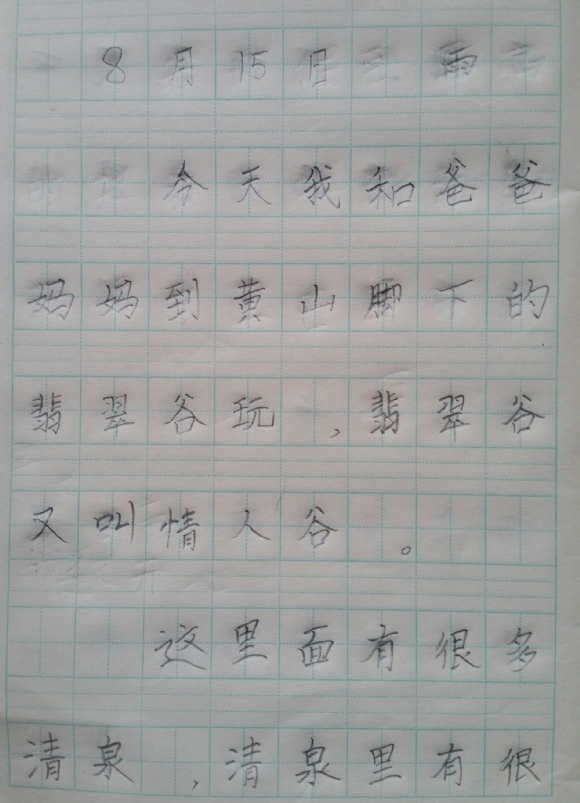 8月15日 雨
今天我和爸爸
妈妈到黄山脚下的
翡翠谷玩，翡翠谷
又叫情人谷。
这里面有很多
清泉，清泉里有很